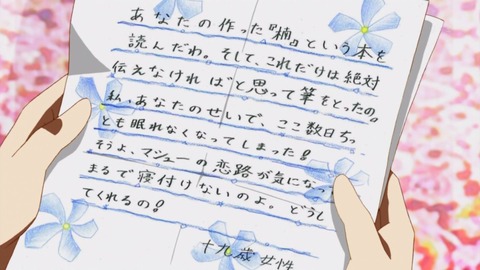 あなたの作った『楠』という本を
読んだわ。そして、これだけは絶対
伝えなければと思って筆をとったの。
私、あなたのせいで、ここ数日ちっ
とも眠れなくなってしまった!
そうよ、マシューの恋路が気になっ
まるで寝付けないのよ。どうし
てくれるの!
十九歳 女性